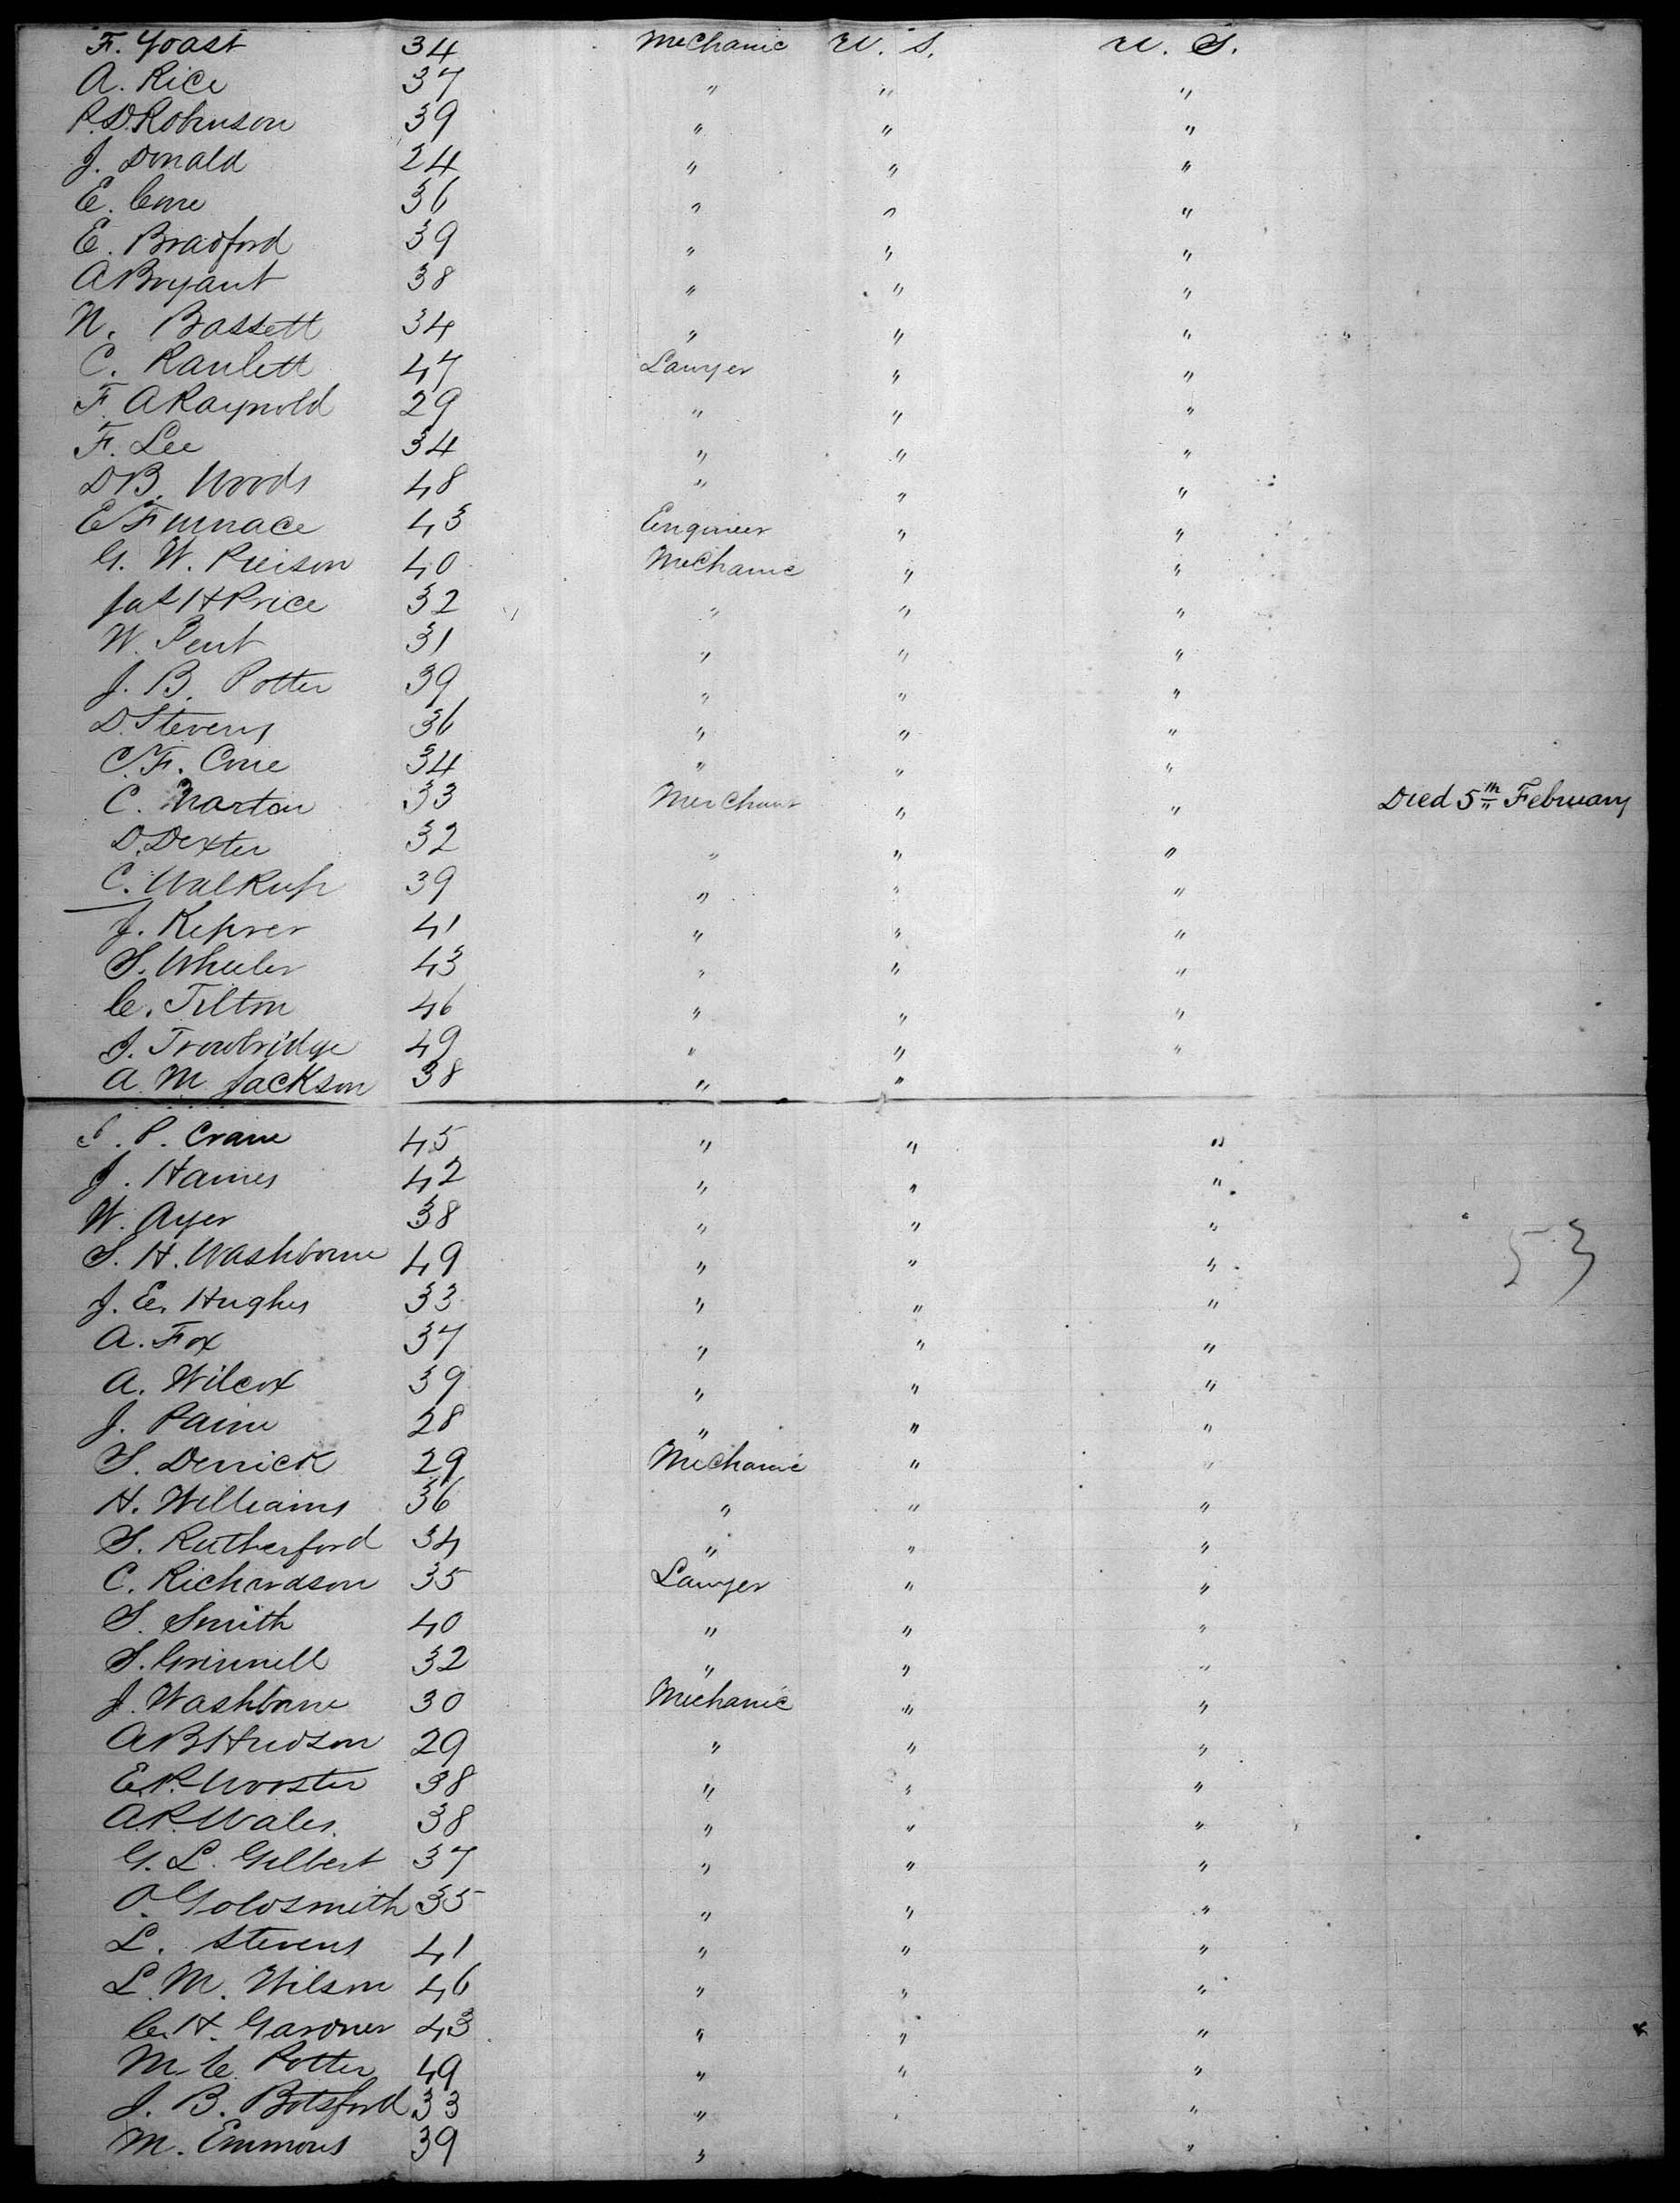 F. Yoast 34 Mechanic U. S. U. S.
A. Rice 37 " " "
R.D. Robinson 39 " " "
J. Donald 24 " " "
E. Cone 36 " " "
E. Bradford 39 " " "
A Bryant 38 " " "
N. Bassett 34 " " "
C. Ranlett 47 Lawyer " "
F. A Raynold 29 " " "
F. Lee 34 " " "
D B. Woods 48 " " "
E Furnace 43 Engineer " "
G. W. 40 Mechanic " "
Jas H Price 32 " " "
W. Pent 31 " " "
J. B. Potter 39 " " "
D. Stevens 36 " " "
C. F. Cone 34 " " "
C. Marton 33 Merchant " " Died 5th February
D. Dexter 32 " " "
C. Walkup 39 " " "
J. Kepner 41 " " "
S. Wheeler 43 " " "
C. Tilton 46 " " "
J. Trowbridge 49 " " "
A. M. Jackson 38 " "
P. Crane 45 " " "
J. Haines 42 " " "
W. Ayer 38 " " "
S. H. Washborne 49 " " "
53
J. E. Hughes 33 " " "
A. Fox 37 " " "
A. Wilcox 39 " " "
J. Paine 28 " " "
S. Derrick 29 Mechanic " "
H. Williams 36 " " "
S. Rutherford 34 " " "
C. Richardson 35 Lawyer " "
S. Smith 40 " " "
S. Grinnell 32 " " "
J. Washborne 30 Mechanic " "
A B Hudson 29 " " "
E.P. Wooster 38 " " "
A.P. Wales 38 " " "
G. L. Gilbert 37 " " "
O. Goldsmith 35 " " "
L. Stevens 41 " " "
L. M. Wilson 46 " " "
C. H. Gardner 43 " " "
M. C. Potter 49 " " "
J. B. Botsford 33 " " "
M. Emmons 39 " "